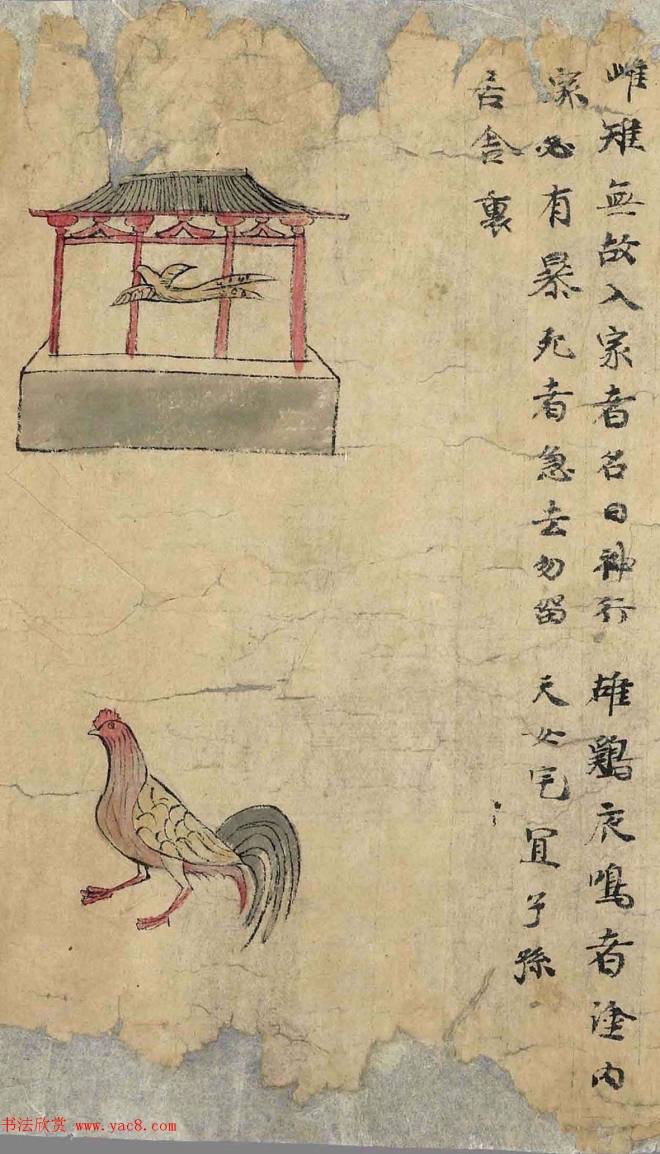 雌雉無故入家者名曰神行
家必有暴死者急去勿留
居舍裏
雄鷄夜鳴者塗内
天女宅宜子孫
书法欣赏 www.yac8.com